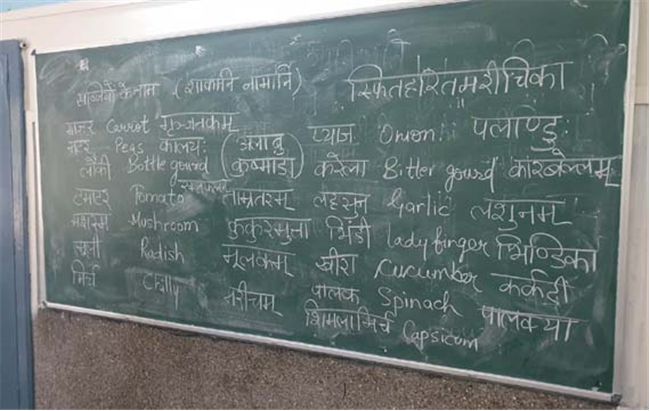 सब्जियों के नाम (शाकानि नामानि) स्फितहरितमरीचिका
गाजर Carrot गृञ्जनकम् प्याज Onion: पलाण्डु:
मटर Peas कालय: (अलाबु
लौकी Bottle gourd कुष्माडा) करेला Bitter gourd कारबेल्लम्
टमाटर Pomato ताम्रतरम् लहसुन Garlic लशुनम्
मशरूम Mushroom कुकुरमुत्ता भिंडी lady finger भिण्डिका
मूली Radish मूलकम् खीरा Cucumber कर्कटी
मिर्च Chilly मरीचम् पालक Spinach पालक्या
शिमलामिर्च Capsicum